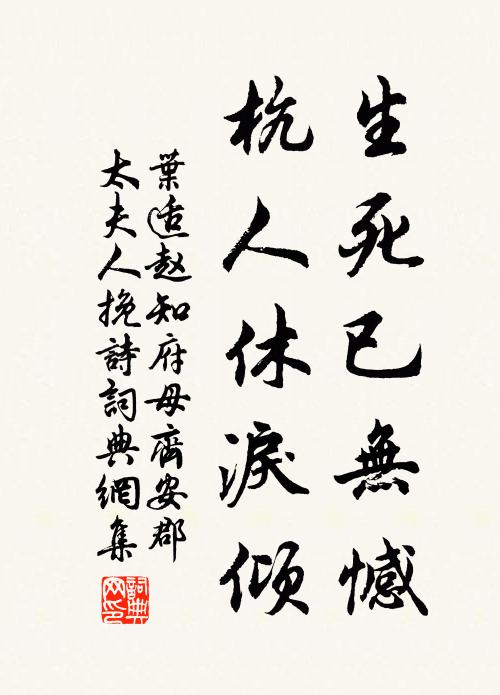 生死已無憾
杭人休淚傾
葉适赵知府母齊安郡
太夫人挽詩詞典網集
詞典網印